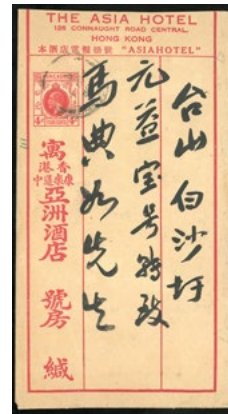 THE ASIA HOTEL
126 CONNAUGHT ROAD CENTRAL,
HONG KONG
本酒店電報掛號 "ASIAHOTEL"
台山白沙圩
元益宝号轉致
馬典如先生
寓香港康樂道中亞洲酒店 號房 緘